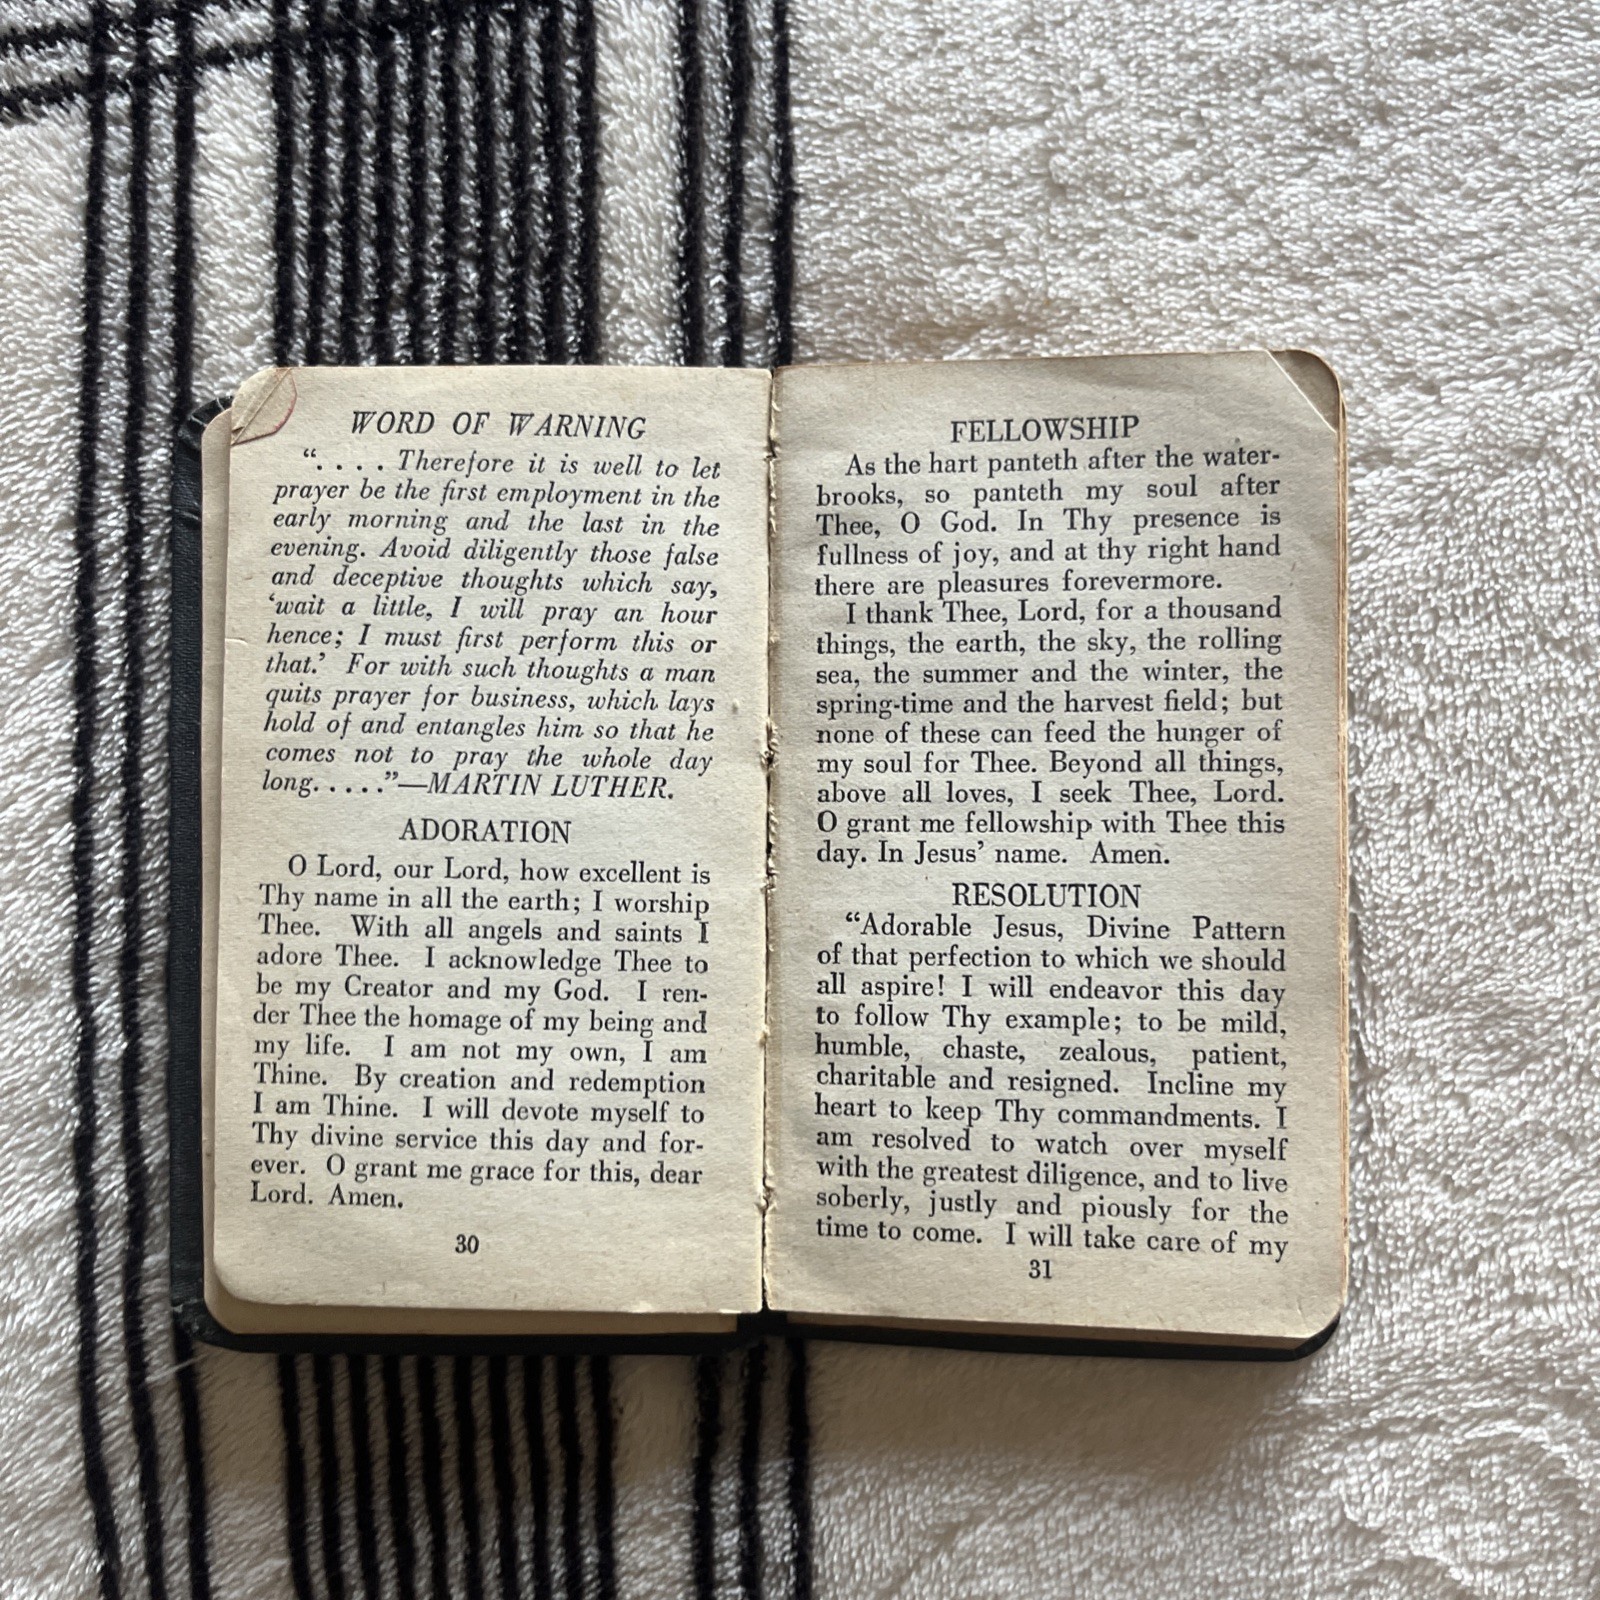 WORD OF WARNING
“. . . . Therefore it is well to let
prayer be the first employment in the
early morning and the last in the
evening. Avoid diligently those false
and deceptive thoughts which say,
‘wait a little, I will pray an hour
hence; I must first perform this or
that.’ For with such thoughts a man
quits prayer for business, which lays
hold of and entangles him so that he
comes not to pray the whole day
long. . . . .”—MARTIN LUTHER.
ADORATION
O Lord, our Lord, how excellent is
Thy name in all the earth; I worship
Thee. With all angels and saints I
adore Thee. I acknowledge Thee to
be my Creator and my God. I ren-
der Thee the homage of my being and
my life. I am not my own, I am
Thine. By creation and redemption
I am Thine. I will devote myself to
Thy divine service this day and for-
ever. O grant me grace for this, dear
Lord. Amen.
30
FELLOWSHIP
As the hart panteth after the water-
brooks, so panteth my soul after
Thee, O God. In Thy presence is
fullness of joy, and at thy right hand
there are pleasures forevermore.
I thank Thee, Lord, for a thousand
things, the earth, the sky, the rolling
sea, the summer and the winter, the
spring-time and the harvest field; but
none of these can feed the hunger of
my soul for Thee. Beyond all things,
above all loves, I seek Thee, Lord.
O grant me fellowship with Thee this
day. In Jesus’ name. Amen.
RESOLUTION
“Adorable Jesus, Divine Pattern
of that perfection to which we should
all aspire! I will endeavor this day
to follow Thy example; to be mild,
humble, chaste, zealous, patient,
charitable and resigned. Incline my
heart to keep Thy commandments. I
am resolved to watch over myself
with the greatest diligence, and to live
soberly, justly and piously for the
time to come. I will take care of my
31